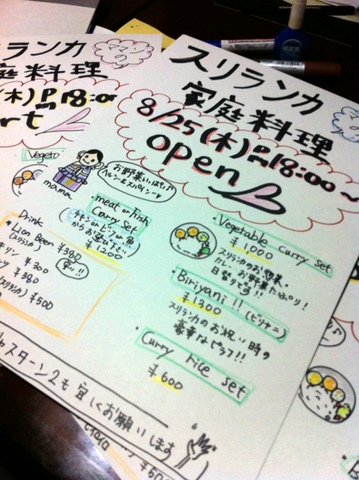 スリランカ
家庭料理
8/25(木)PM18:00〜
open
お野菜いっぱい♪
ヘルシー&スパイシー
mama
meat or fish
Curry Set
¥1,200
Drink
Lion Beer ¥380
(スリランカ)
安い!!
¥300
¥380
スリランカ ¥500
・Vegetable curry set
¥1,000
スリランカのお惣菜・
カレー。お野菜たっぷり!
日替りです!!
・Biriyani!! (ビリヤニ)
¥1300
スリランカのお祝い時の
豪華なピラフ!!
・Curry rice set
¥600
スターン2も宜しくお願いします
ランカ
庭料理
(木)PM18:00
Vegeta